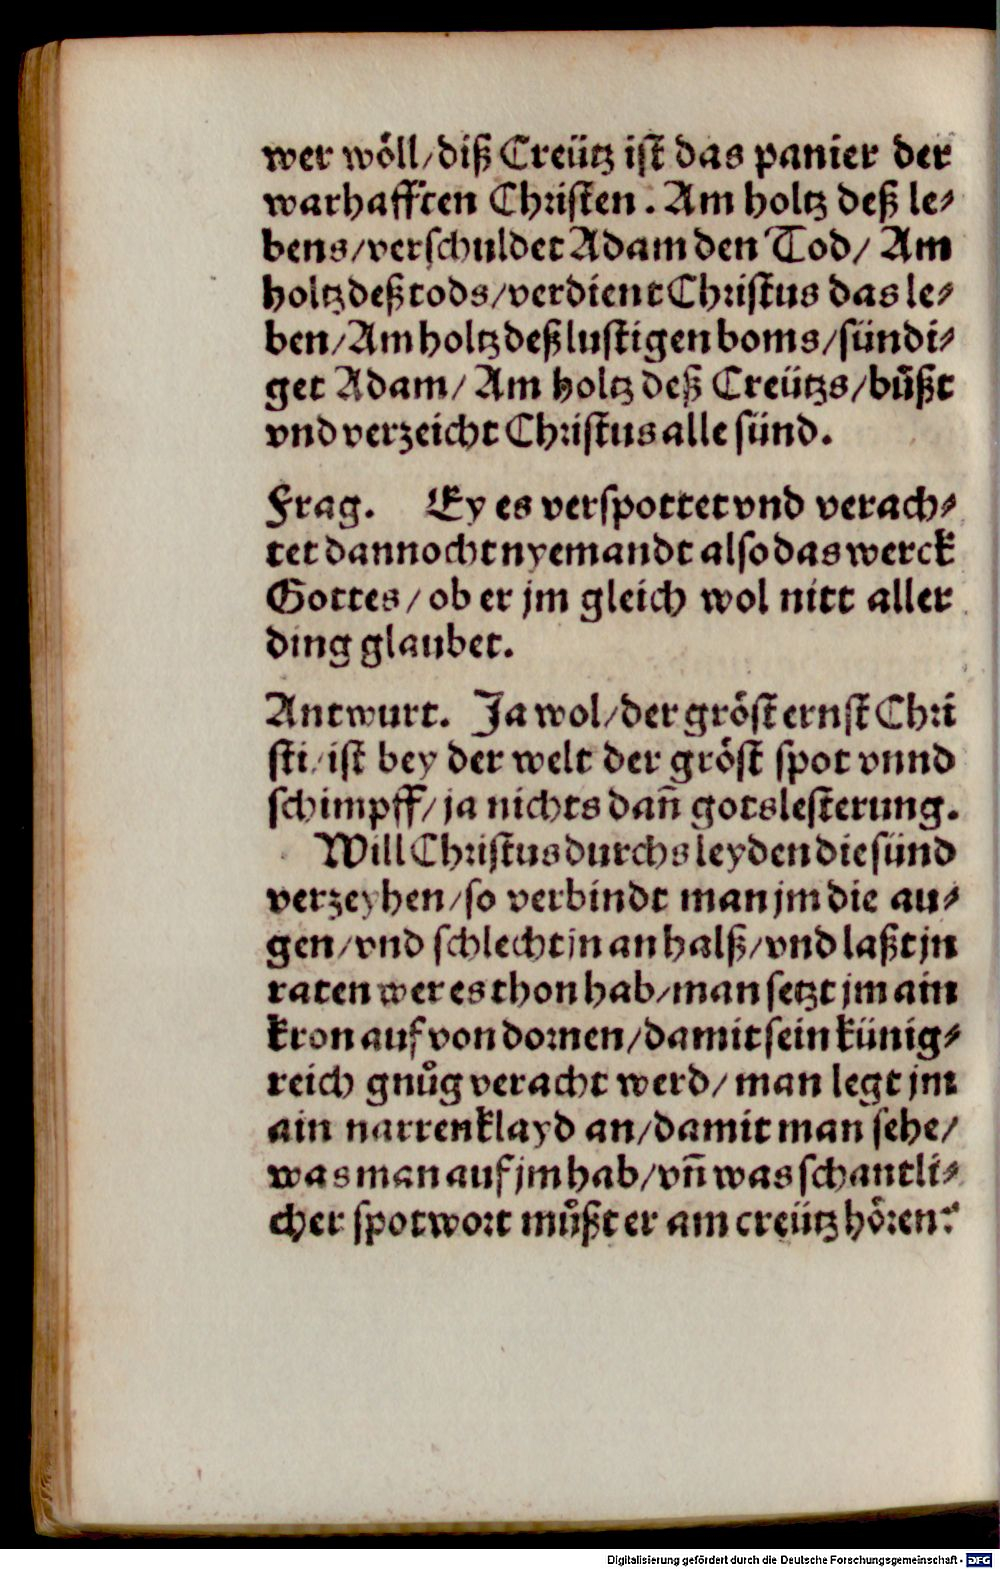 wer wöll/diß Creütz ist das panier der
warhafften Christen. Am holtz deß le⸗
bens/verschuldet Adam den Tod/ Am
holtz deß tods/verdient Christus das le⸗
ben/Am holtz deß lustigen boms/sündi⸗
get Adam/ Am holtz deß Creützs/bůßt
vnd verzeicht Christus alle sünd.
Frag. Ey es verspottet vnd verach⸗
tet dannocht nyemandt also das werck
Gottes/ ob er jm gleich wol nitt aller
ding glaubet.
Antwurt. Ja wol/der gröst ernst Chri
sti/ist bey der welt der gröst spot vnnd
schimpff/ja nichts dañ gotslesterung.
Will Christus durchs leyden die sünd
verzeyhen/so verbindt man jm die au⸗
gen/vnd schlecht jn an halß/vnd laßt jn
raten wer es thon hab/man setzt jm ain
kron auf von dornen/damit sein künig⸗
reich gnůg veracht werd/ man legt jm
ain narrenklayd an/damit man sehe/
was man auf jm hab/vñ was schantli⸗
cher spotwort můßt er am creütz hören?
Digitalisierung gefördert durch die Deutsche Forschungsgemeinschaft - DFG